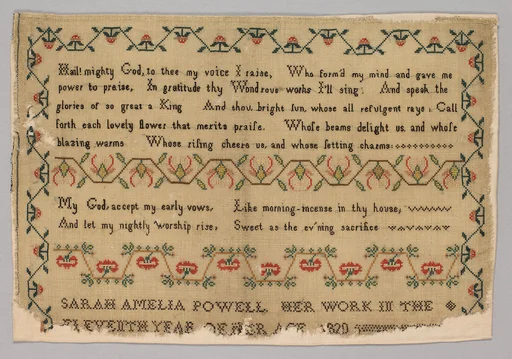 Hail! mighty God, to thee my voice I raise, Who form'd my mind and gave me
power to praise, In gratitude thy Wondrous works I'll sing; And speak the
glories of so great a King And thou bright sun, whose all refulgent rays, Call
forth each lovely flower that merits praiſe. Whoſe beams delight us, and whoſe
blazing warms Whose riſing cheers us, and whose ſetting charms
My God, accept my early vows, Like morning-incense in thy house,
And let my nightly worship rise, Sweet as the ev'ning sacrifice
SARAH AMELIA POWELL HER WORK IN THE
ELEVENTH YEAR OF HER AGE 1820